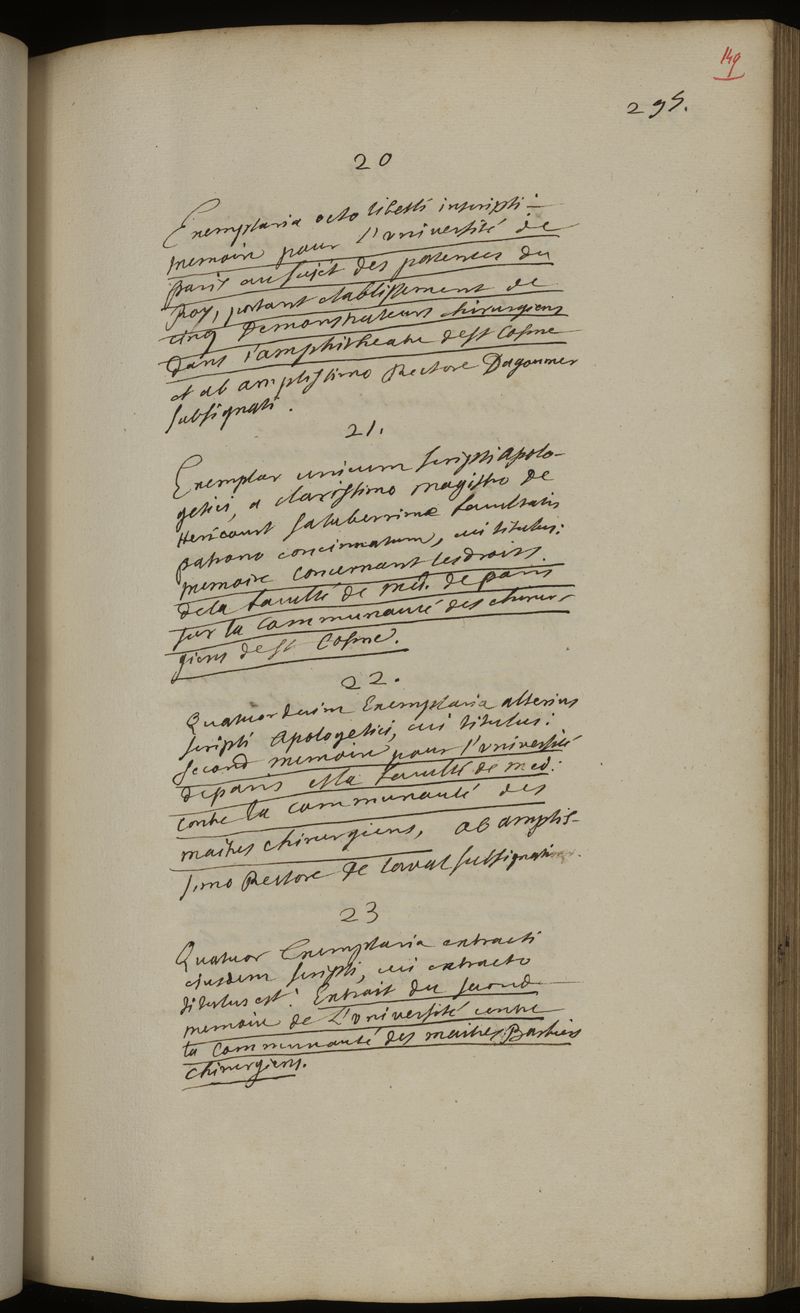 149
295.
20
Exemplaria octo libelli inscripti:
memoire pour l'université de
paris au sujet des patentes du
Roy, portant etablissement de
cinq Demonstrateurs chirurgiens
dans l'amphitheatre de st Cosme
et ab amplissimo Rectore Dagoumer
subsignati.
21.
Exemplar unicum scripti apolo-
getici, a clarissimo magistro de
Hericourt saluberrimæ facultatis
patrono concinnatum, cui titulus:
memoire concernant les droits
de la faculté de med. de paris
sur la communauté des chirur-
giens de st Cosme.
22.
Quatuordecim Exemplaria alterius
scripti Apologetici, cui titulus:
second memoire pour l'université
de paris et la faculté de med:
contre la communauté des
maitres chirurgiens, ab amplis-
simo Rectore de laval subsignati
23
Quatuor Exemplaria extracti
ejusdem scripti, cui extracto
titulus est: Extrait du second
memoire de L'université contre
la communauté des maitres Barbiers
chirurgiens.